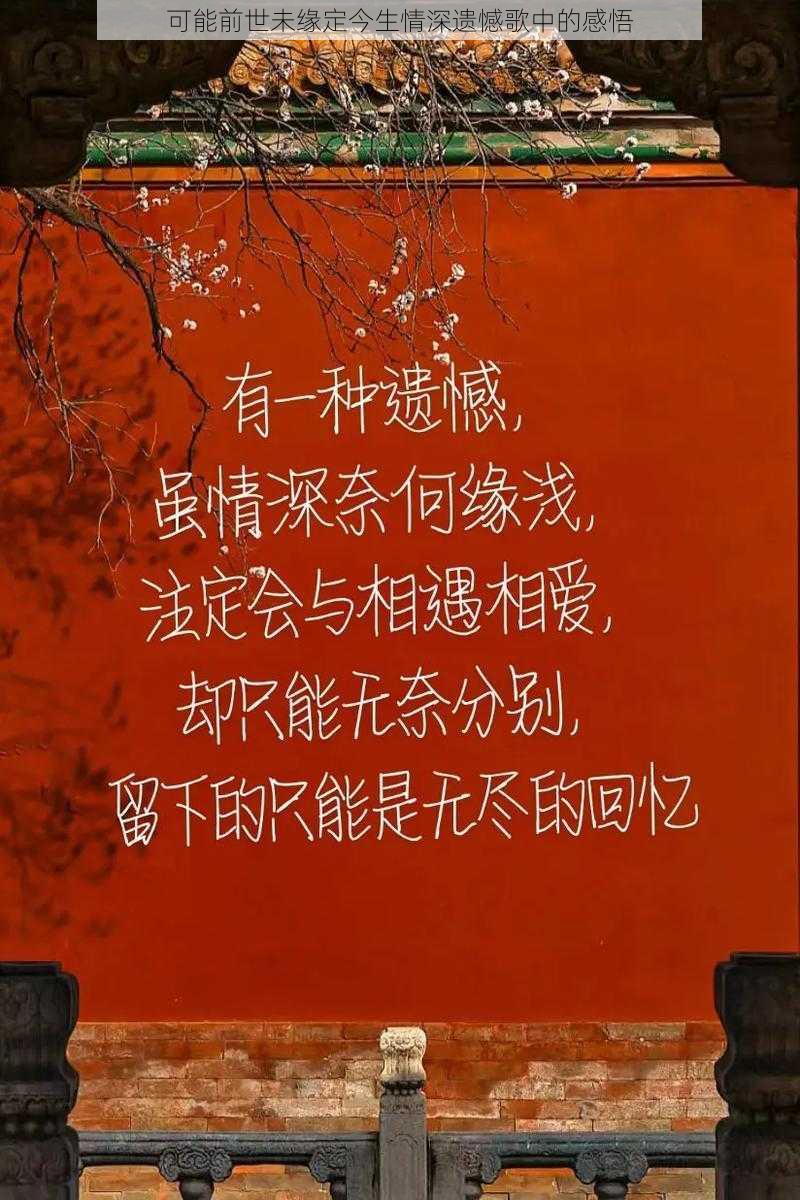 可能前世未缘定今生情深遗憾歌中的感悟
有一种遗憾,
虽情深奈何缘浅,
注定会与相遇相爱,
却只能无奈分别,
留下的只能是无尽的回忆